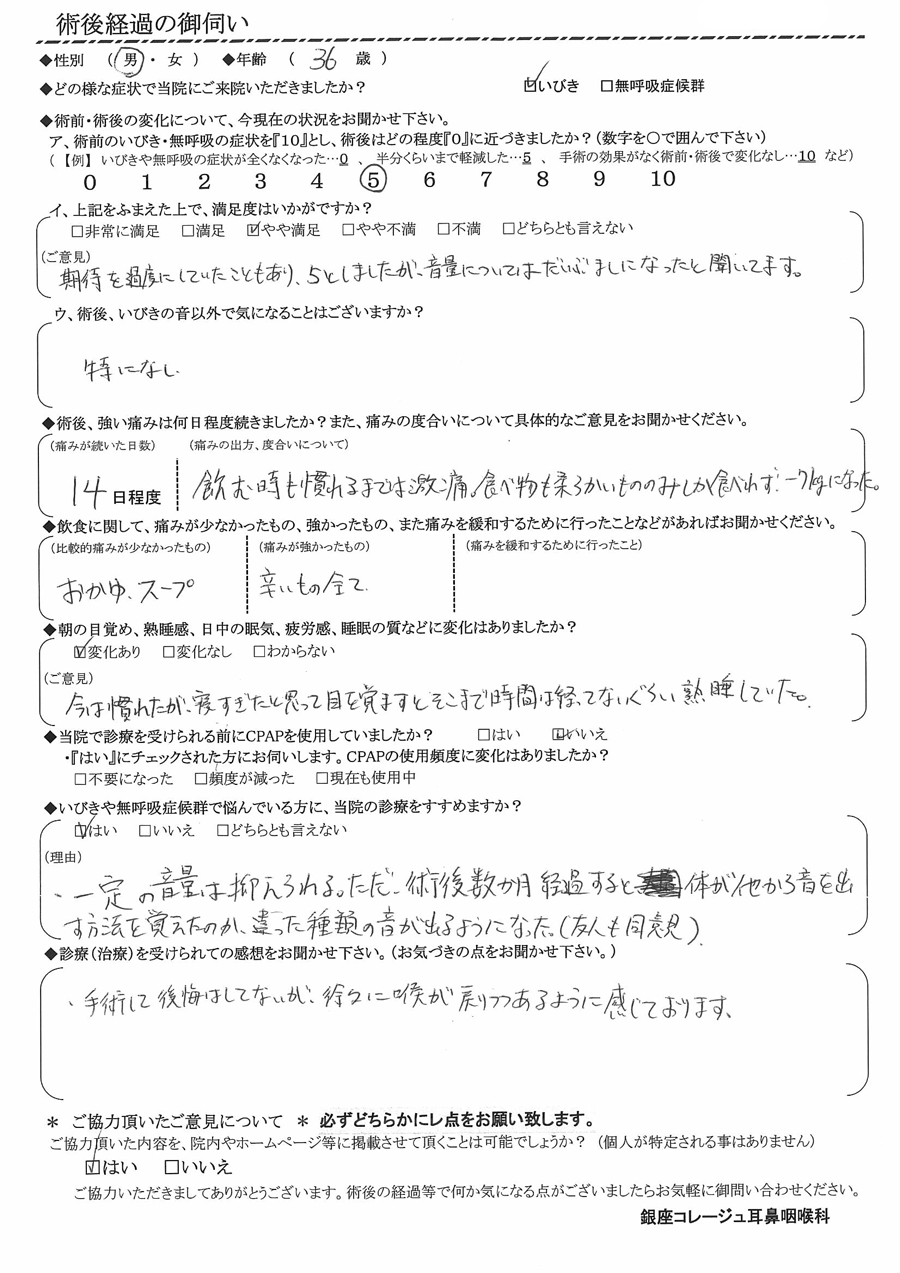 術後経過の御伺い
◆性別 （ 男 ・ 女 ） ◆年齢 （ 36 歳 ）
◆どの様な症状で当院にご来院いただきましたか？ ☑いびき □無呼吸症候群
◆術前・術後の変化について、今現在の状況をお聞かせ下さい。
ア、術前のいびき・無呼吸の症状を『10』とし、術後はどの程度『0』に近づきましたか？（数字を〇で囲んで下さい）
（【例】いびきや無呼吸の症状が全くなくなった…0 、 半分くらいまで軽減した…5 、 手術の効果がなく術前・術後で変化なし…10 など）
0 1 2 3 4 ⑤ 6 7 8 9 10
イ、上記をふまえた上で、満足度はいかがですか？
□非常に満足 □満足 ☑やや満足 □やや不満 □不満 □どちらとも言えない
（ご意見）
期待を過度にしていたこともあり、5としましたが、音量についてはだいぶましになったと聞いてます。
ウ、術後、いびきの音以外で気になることはございますか？
特になし
◆術後、強い痛みは何日程度続きましたか？また、痛みの度合いについて具体的なご意見をお聞かせください。
（痛みが続いた日数） （痛みの出方、度合いについて）
14 日程度 飲む時も慣れるまでは激痛。食べ物も柔らかいもののみしか食べれず！－7kgになった。
◆飲食に関して、痛みが少なかったもの、強かったもの、また痛みを緩和するために行ったことなどがあればお聞かせください。
（比較的痛みが少なかったもの） （痛みが強かったもの） （痛みを緩和するために行ったこと）
おかゆ、スープ 辛いもの全て
◆朝の目覚め、熟睡感、日中の眠気、疲労感、睡眠の質などに変化はありましたか？
☑変化あり □変化なし □わからない
（ご意見）
今は慣れたが、寝すぎたと思って目を覚ますとそこまで時間は経ってないぐらい熟睡していた。
◆当院で診療を受けられる前にCPAPを使用していましたか？ □はい ☑いいえ
・『はい』にチェックされた方にお伺いします。CPAPの使用頻度に変化はありましたか？
□不要になった □頻度が減った □現在も使用中
◆いびきや無呼吸症候群で悩んでいる方に、当院の診療をすすめますか？
☑はい □いいえ □どちらとも言えない
（理由）
・一定の音量は抑えられる。ただ、術後数か月経過すると 体が他から音を出
す方法を覚えたのか、違った種類の音が出るようになった。（友人も同意見）
◆診療（治療）を受けられての感想をお聞かせ下さい。（お気づきの点をお聞かせ下さい。）
・手術して後悔はしてないが、徐々に喉が戻りつつあるように感じております。
＊ ご協力頂いたご意見について ＊ 必ずどちらかにレ点をお願い致します。
ご協力頂いた内容を、院内やホームページ等に掲載させて頂くことは可能でしょうか？ （個人が特定される事はありません）
☑はい □いいえ
ご協力いただきましてありがとうございます。術後の経過等で何か気になる点がございましたらお気軽に御問い合わせください。
銀座コレージュ耳鼻咽喉科